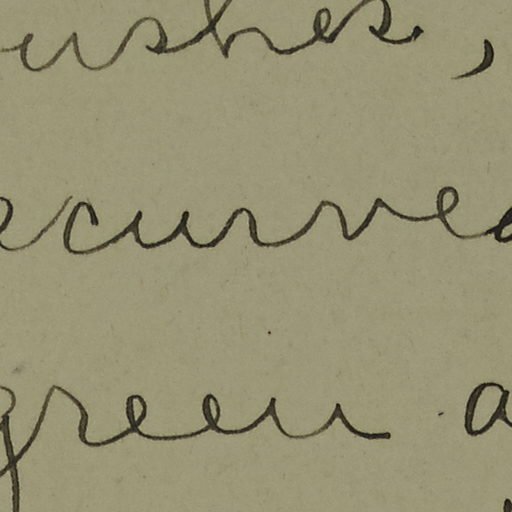 ushes,
ecurved
green a